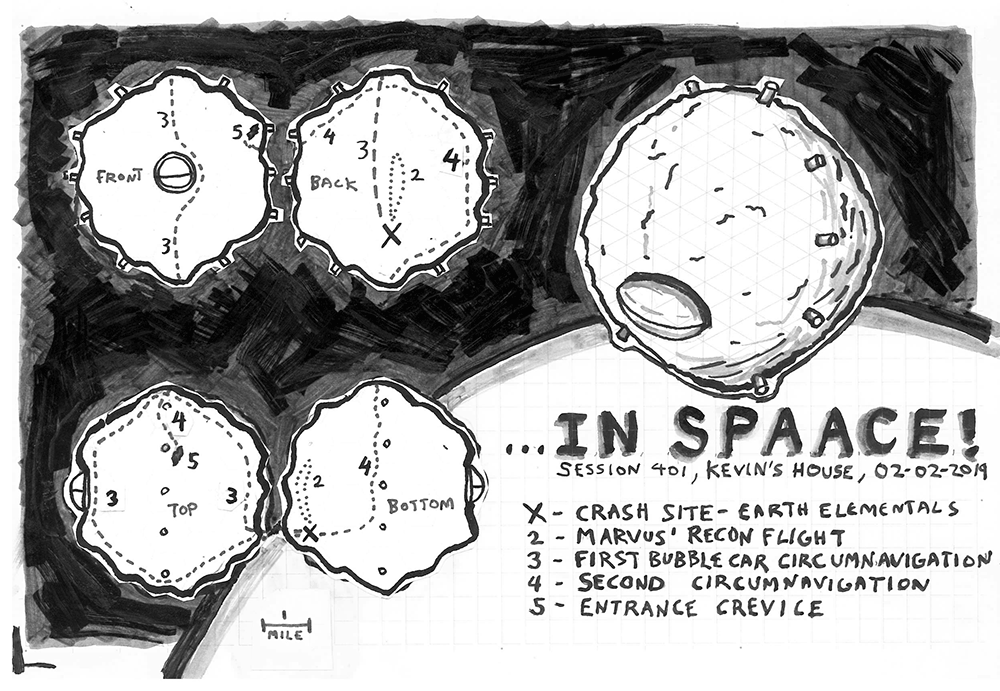 3
5
FRONT
3
4
3
4
BACK
2
X
4
5
3
3
TOP
2
4
BOTTOM
X
1
MILE
...IN SPAACE!
SESSION 401, KEVIN'S HOUSE, 02-02-2019
X - CRASH SITE - EARTH ELEMENTALS
2 - MARVUS' RECON FLIGHT
3 - FIRST BUBBLE CAR CIRCUMNAVIGATION
4 - SECOND CIRCUMNAVIGATION
5 - ENTRANCE CREVICE